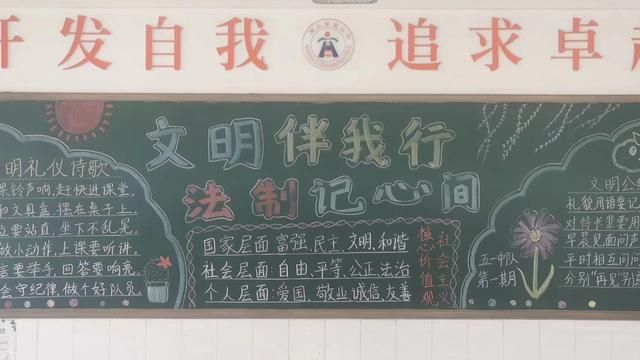 开发自我 追求卓越
文明伴我行
法制记心间
明礼仪诗歌
课铃声响,赶快进课堂
和文具盒,摆在桌子上
立要站直,坐下不乱晃
做小动作,上课要听讲,
言要举手,回答要响亮,
会守纪律,做个好队员,
国家层面:富强,民主,文明,和谐
社会层面:自由,平等,公正法治
个人层面:爱国,敬业,诚信,友善
社会主义
核心价值观
五一中队
第一期
文明公
礼貌用语要记
对待长辈要用
早晨见面问声
平时相互问问
分别"再见"别忘